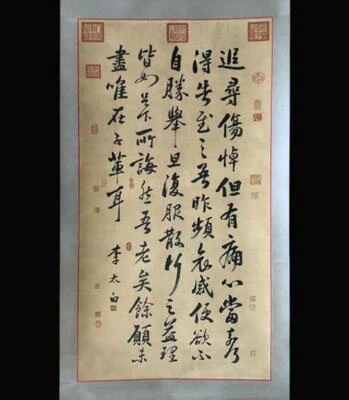 追尋傷悼但有痛心當奈
得告至之吾昨頻哀感便欲不
自勝舉旦復服散行之益理
皆如所誨然吾老矣餘願未
盡唯在子輩耳
李太白